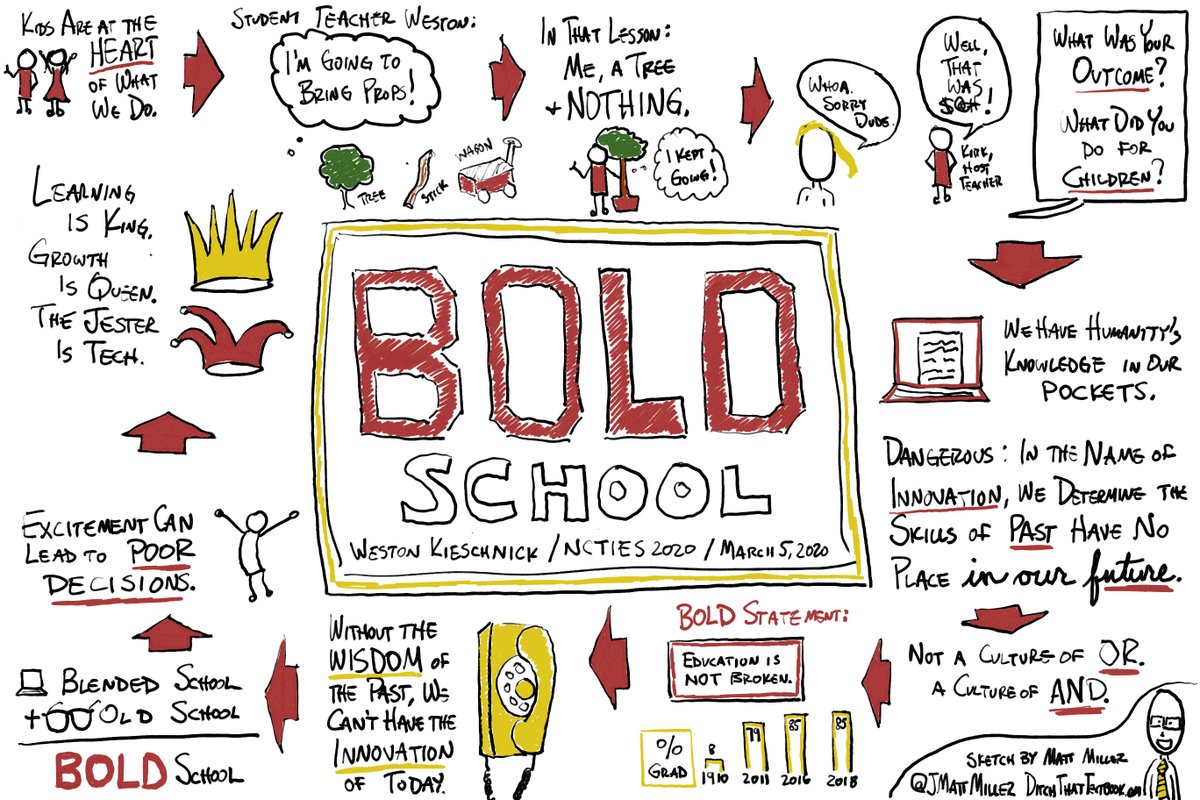 KIDS ARE AT THE
HEART
OF WHAT
WE DO.
STUDENT TEACHER WESTON:
I'M GOING TO
BRING PROPS!
TREE
STICK
WAGON
IN THAT LESSON:
ME, A TREE
+ NOTHING.
I KEPT
GOING!
WHOA.
SORRY
DUDE.
WELL,
THAT
WAS
$@#!
KIRK,
HOST
TEACHER
WHAT WAS YOUR
OUTCOME?
WHAT DID YOU
DO FOR
CHILDREN?
WE HAVE HUMANITY'S
KNOWLEDGE IN OUR
POCKETS.
DANGEROUS: IN THE NAME OF
INNOVATION, WE DETERMINE THE
SKILLS OF PAST HAVE NO
PLACE in our future.
NOT A CULTURE OF OR.
A CULTURE OF AND.
BOLD STATEMENT:
EDUCATION IS
NOT BROKEN.
%
GRAD
8
1910
79
2011
85
2016
85
2018
WITHOUT THE
WISDOM OF
THE PAST, WE
CAN'T HAVE THE
INNOVATION
OF TODAY.
BLENDED SCHOOL
+ OLD SCHOOL
BOLD SCHOOL
EXCITEMENT CAN
LEAD TO POOR
DECISIONS.
LEARNING
IS KING,
GROWTH
IS QUEEN.
THE JESTER
IS TECH.
BOLD
SCHOOL
WESTON KIESCHNICK / NCTIES 2020 / MARCH 5, 2020
SKETCH BY MATT MILLER
@JMATTMILLER DITCHTHATTEXTBOOK.COM